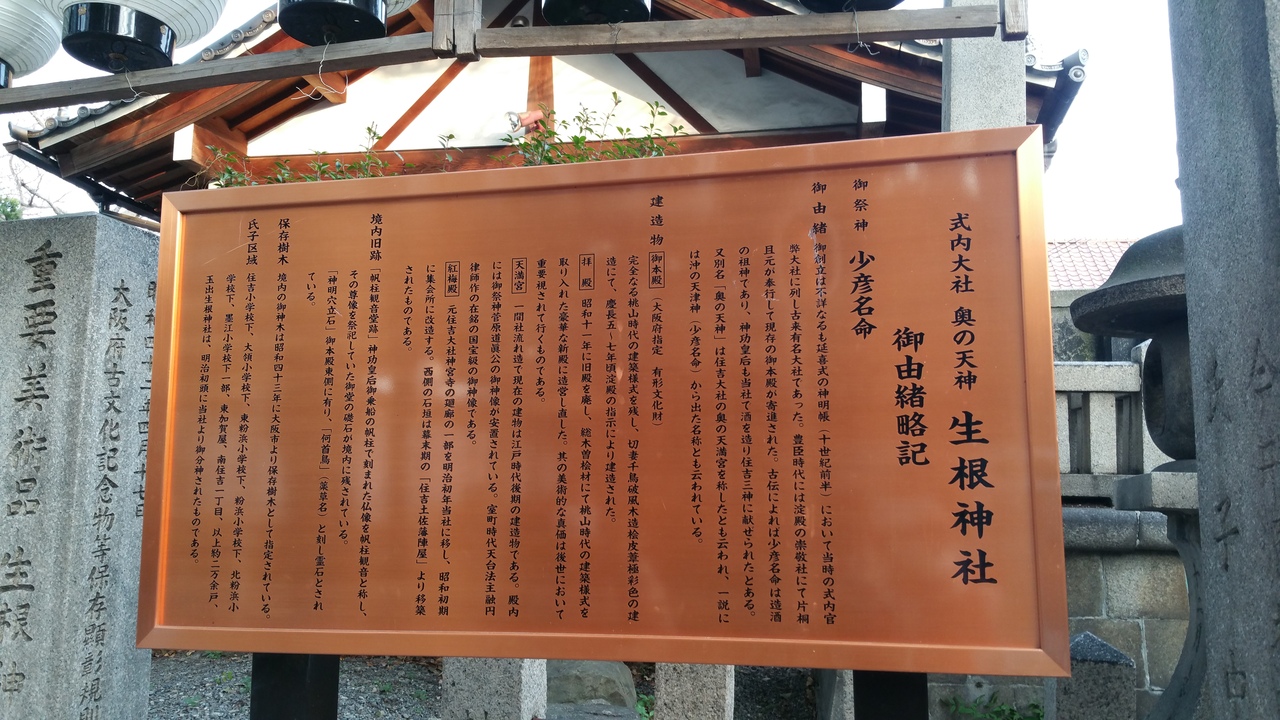 式内大社 奥の天神 生根神社
御由緒略記
御祭神 少彦名命
御由緒 御創立は不詳なるも延喜式の神明帳（十世紀前半）において当時の式内官
弊大社に列し古来有名大社であった。豊臣時代には淀殿の崇敬社にて片桐
且元が奉行して現存の御本殿が寄進された。古伝によれば少彦名命は造酒
の祖神であり、神功皇后も当社て酒を造り住吉三神に献せられたとある。
又別名「奥の天神」は住吉大社の奥の天満宮を称したとも云われ、一説に
は沖の天津神（少彦名命）から出た名称とも云われている。
建造物 御本殿（大阪府指定 有形文化財）
完全なる桃山時代の建築様式を残し、切妻千鳥破風木造桧皮葺極彩色の建
造にて、慶長五～七年頃淀殿の指示により建造された。
拝殿 昭和十一年に旧殿を廃し、総木曽桧材にて桃山時代の建築様式を
取り入れた豪華な新殿に造営し直した。其の美術的な真価は後世において
重要視されて行くものである。
天満宮 一間社流れ造で現在の建物は江戸時代後期の建造物である。殿内
には御祭神菅原道眞公の御神像が安置されている。室町時代天台法主融円
律師作の在銘の国宝級の御神像である。
紅梅殿 元住吉大社神宮寺の廻廊の一部を明治初年当社に移し、昭和初期
に集会所に改造する。西側の石垣は幕末期の「住吉土佐藩陣屋」より移築
されたものである。
境内旧跡 「帆柱観音堂跡」神功皇后御乗船の帆柱で刻まれた仏像を帆柱観音と称し、
その尊像を祭祀していた御堂の礎石が境内に残されている。
「神明穴立石」御本殿東側に有り、「何首烏」（薬草名）と刻し霊石とされ
ている。
保存樹木 境内の御神木は昭和四十三年に大阪市より保存樹木として指定されている。
氏子区域 住吉小学校下、大領小学校下、東粉浜小学校下、粉浜小学校下、北粉浜小
学校下、墨江小学校下一部、東加賀屋、南住吉一丁目、以上約二万余戸、
玉出生根神社は、明治初頭に当社より御分神されたものである。
大阪府古文化記念物等保存顕彰規則
重要美術品 生根神